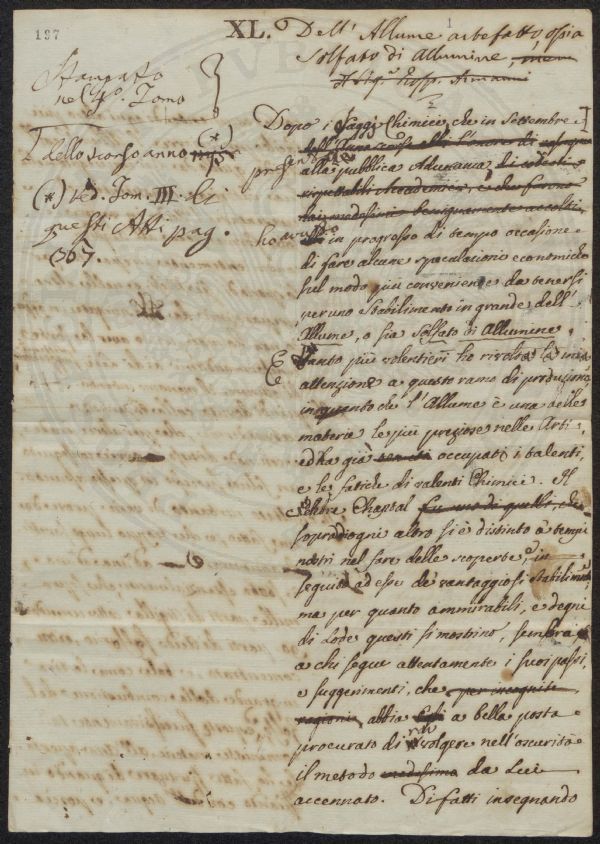 187
1
XL. Dell'Allume artefatto, ossia
Solfato di Allumine
Stampato
nel 4º. Tomo
Dopo i Saggi Chimici, che in Settembre
dello scorso anno (*)
presentai
alla pubblica Adunanza
(*) ved. Tom. III. di
questi Atti pag.
367.
ho avuto
in progresso di tempo occasione
di fare alcune speculazioni economiche
sul modo più conveniente da tenersi
per uno Stabilimento in grande dell'
Allume, o sia Solfato di Allumine.
E tanto più volentieri ho rivolta la mia
attenzione a questo ramo di produzione
in quanto che l'Allume è una delle
materie le più preziose nelle Arti,
ed ha già occupati i talenti,
e le fatiche di valenti Chimici. Il
celebre Chaptal fu uno di quelli, che
sopra d'ogni altro si è distinto a' tempi
nostri nel fare delle scoperte, in
seguito ad esse de' vantaggiosi stabilimenti
ma per quanto ammirabili, e degni
di Lode questi si mostrino, sembra
a chi segue attentamente i suoi passi,
e suggerimenti, che per incognite
ragioni, abbia Egli a bella posta
procurato di involgere nell'oscurità
il metodo medesimo da Lui
accennato. Difatti insegnando